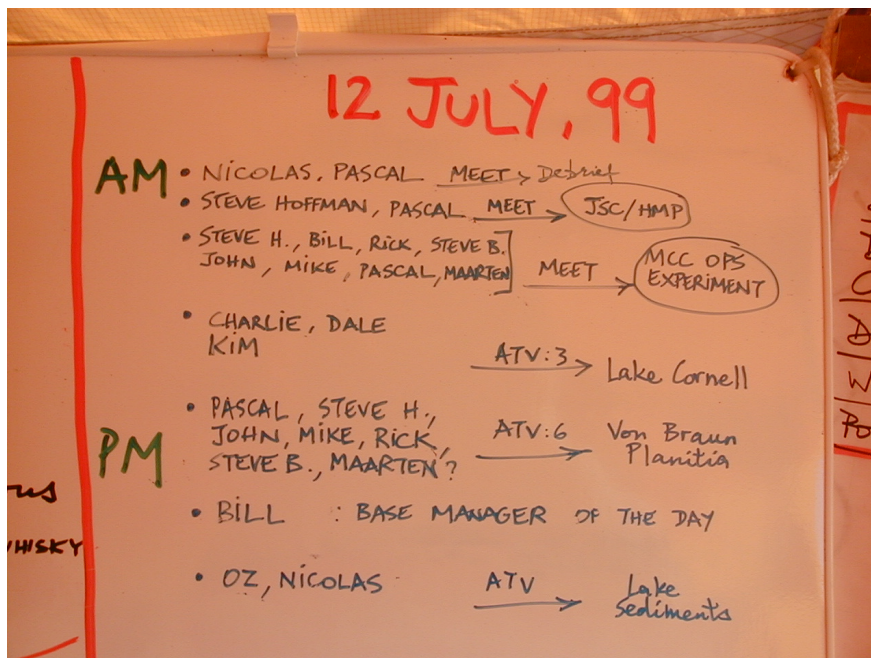 12 JULY, 99
AM • NICOLAS, PASCAL MEET → Debrief
• STEVE HOFFMAN, PASCAL MEET → JSC/HMP
• STEVE H., BILL, RICK, STEVE B.
JOHN, MIKE, PASCAL, MAARTEN] MEET → MCC OPS
EXPERIMENT
• CHARLIE, DALE
KIM
ATV:3 → Lake Cornell
• PASCAL, STEVE H.,
PM JOHN, MIKE, RICK, ATV:6 → Von Braun
STEVE B., MAARTEN? Planitia
• BILL : BASE MANAGER OF THE DAY
• OZ, NICOLAS ATV → Lake
Sediments
WHISKY